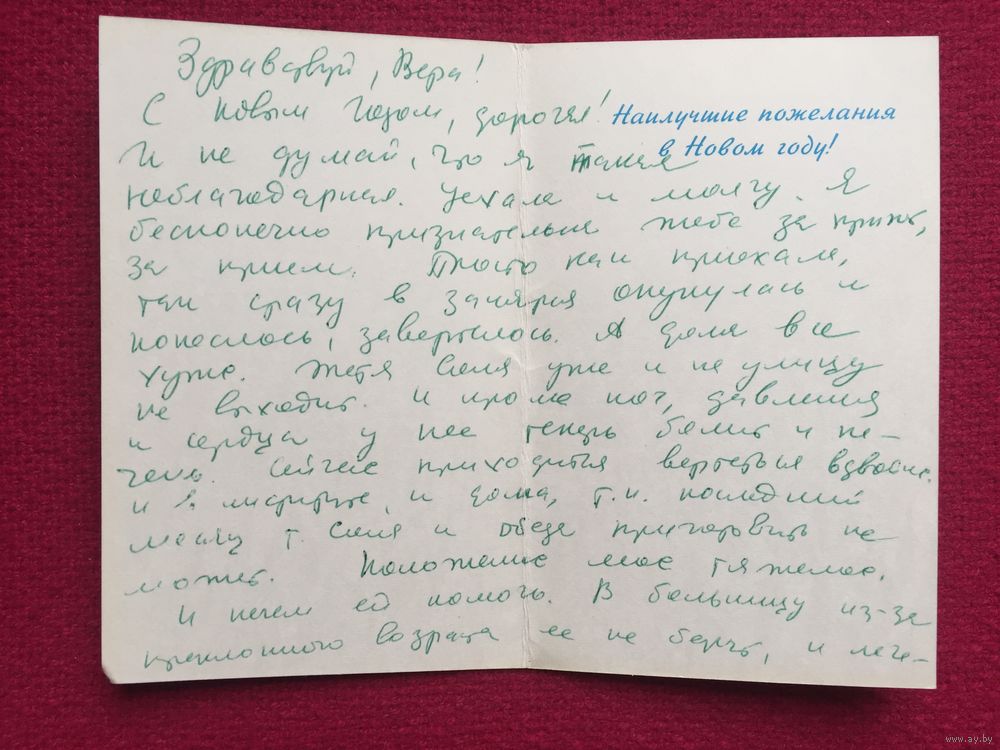 Здравствуй, Вера!
С Новым Годом, дорогая!
Наилучшие пожелания
в Новом году!
И не думай, что я такая
неблагодарная. Уехала и молчу. Я
бесконечно признательна тебе за приют,
за прием. Просто как приехала,
так сразу в занятия окунулась и
понеслось, завертелось. А дома все
хуже. Тетя Селя уже и на улицу
не выходит. И кроме ног, давления
и сердца у нее теперь болит и пе-
чень. Сейчас приходится вертеться вдвойне.
и в институте, и дома, т.к. последний
месяц т. Селя и обеда приготовить не
может. Положение мое тяжелое.
И нечем ей помочь. В больницу из-за
преклонного возраста ее не берут, и лече-
www.ay.by